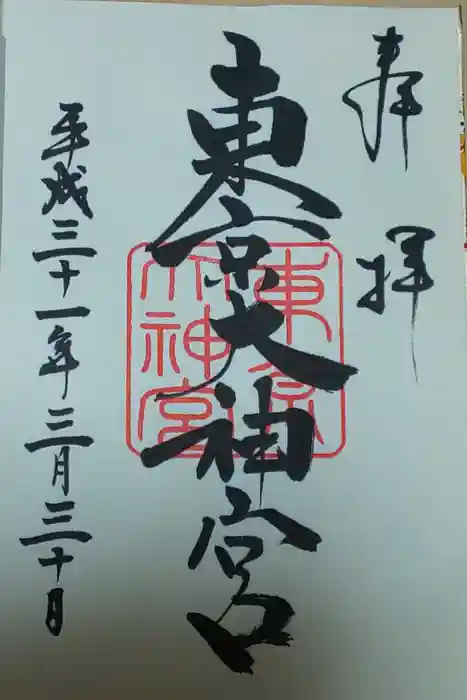 奉拝
東京大神宮
東京
大神宮
平成三十一年三月三十日